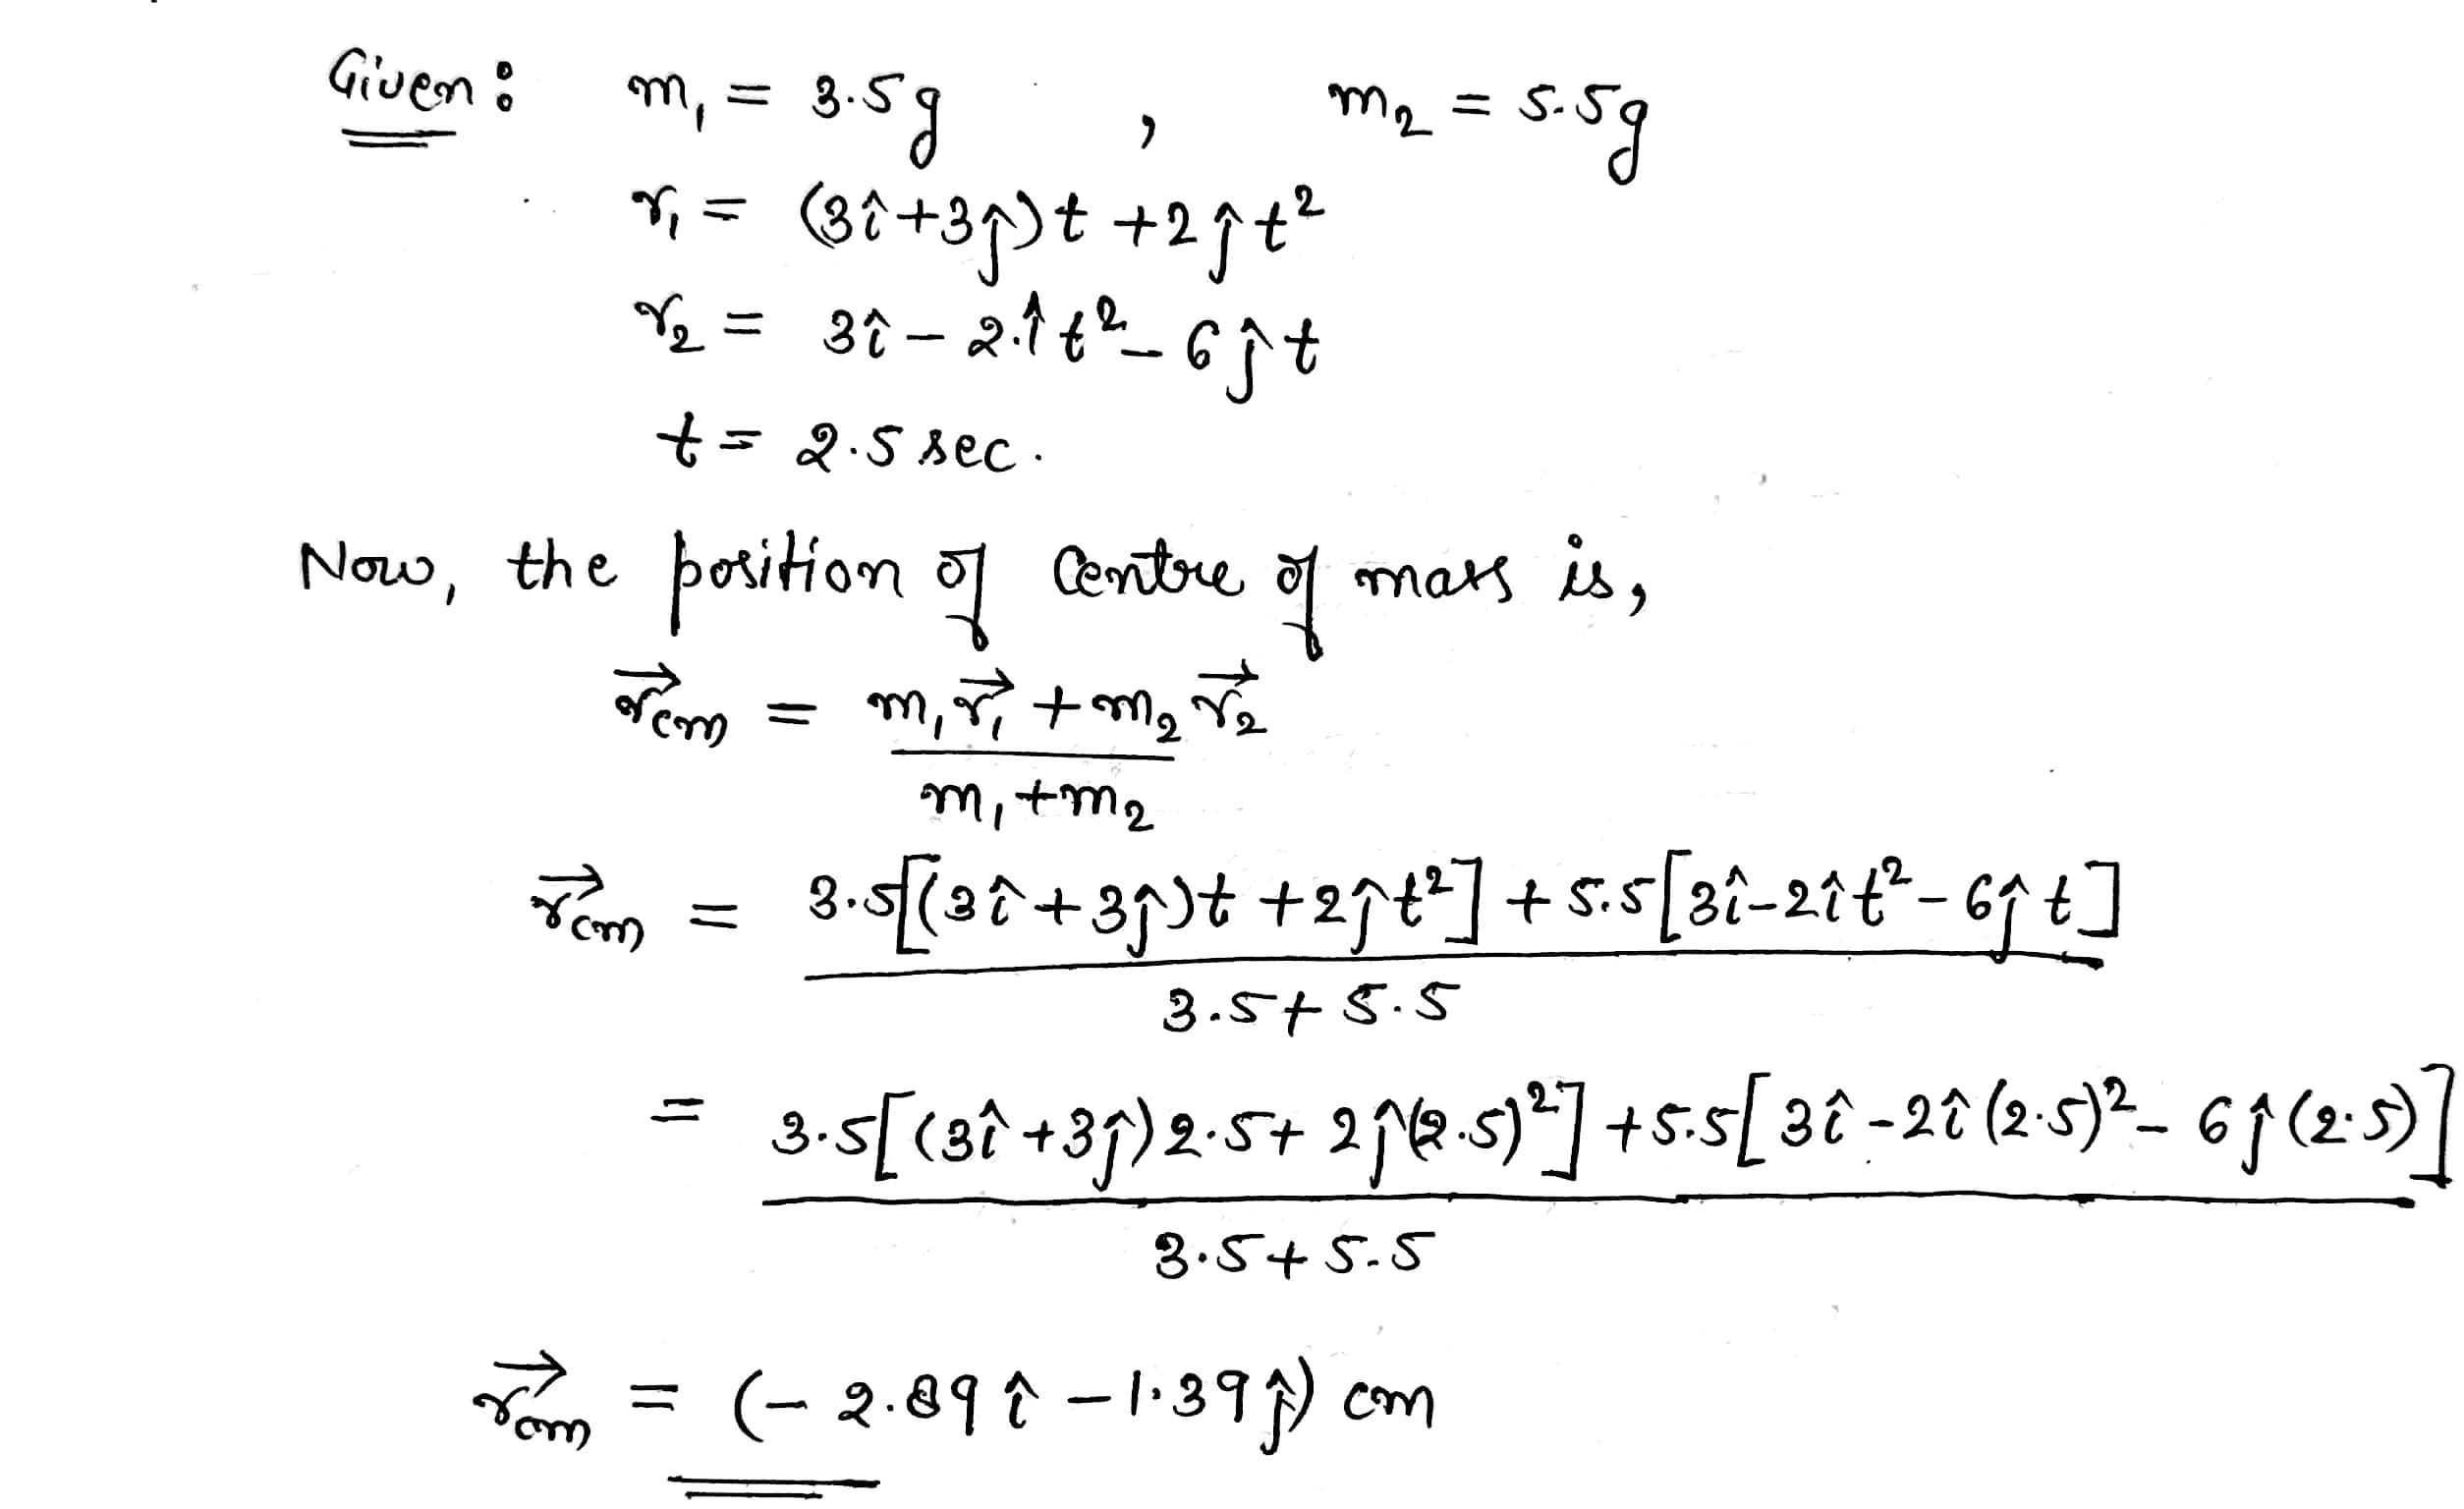 Given: m₁ = 3.5g , m₂ = 5.5g
r₁ = (3î+3ĵ)t +2ĵt²
r₂ = 3î – 2.î t² – 6ĵt
t = 2.5 sec.
Now, the position of Centre of mass is,
r⃗cm = m₁r⃗₁ + m₂ r⃗₂
m₁+m₂
r⃗cm = 3.5[(3î+3ĵ)t +2ĵt²] + 5.5[3î–2ît² – 6ĵt]
3.5+ 5.5
= 3.5[(3î+3ĵ)2.5+ 2ĵ(2.5)²] +5.5[3î-2î(2.5)² – 6ĵ(2.5)]
3.5+5.5
r⃗cm = (– 2.89î – 1.39ĵ) cm